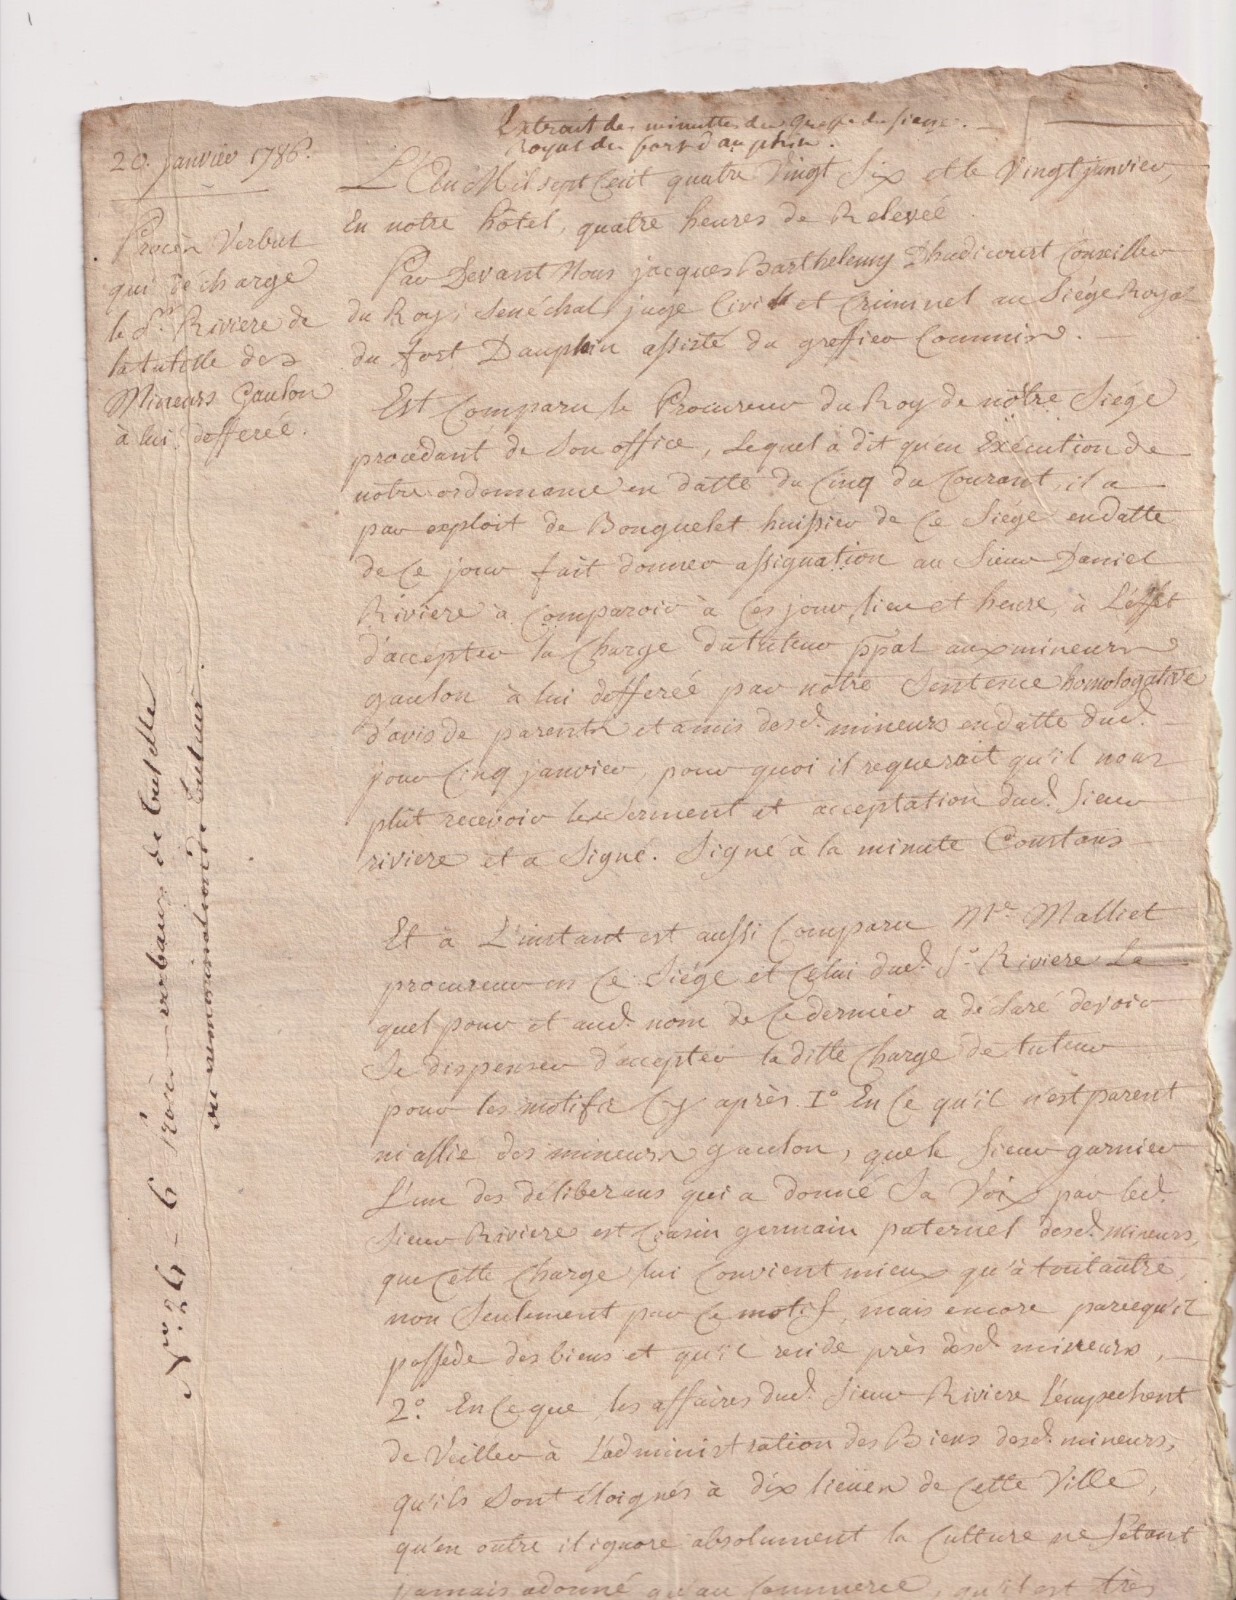 Extrait des minuttes du greffe du siege
Royal du fort dauphin.
20. janvier 1786.
Procès Verbal
qui décharge
le Sr. Riviere de
la tutelle des
Mineurs Gaulon
à lui defferée.
L'An Mil sept Cent quatre Vingt Six et le Vingt janvier,
En notre hôtel, quatre heures de Relevée
Par Devant Nous jacques Barthelemy Dhadicourt Conseiller
du Roy, Senéchal juge Civil et Criminel au Siége Royal
du fort Dauphin assisté du greffier Commis.
Est Comparu le Procureur du Roy de nôtre Siége
procédant de Son office, Lequel à dit qu'en Exécution de
notre ordonnance en datte du Cinq du Courant, il a
par exploit de Bouquelet huissier de Ce Siége en datte
de Ce jour fait donner assignation au Sieur Daniel
Riviere à Comparoir à Ces jour, lieu et heure, à L'éffet
d'accepter la Charge de tuteur ppal aux mineurs
gaulon à lui defferée par notre Sentence homologative
d'avis de parents et amis desd. mineurs en datte dud.
jour Cinq janvier, pour quoi il requerait qu'il nous
plût recevoir les serment et acceptation dud. Sieur
riviere et a Signé. Signé à la minute Courtans
Et à L'instant est aussi Comparu Me. Malliet
procureur en Ce Siége et Celui dud. Sr. Riviere La
quel pour et aud. nom de Ce dernier a déclaré devoir
Se dispenser d'accepter la ditte Charge de tuteur
pour les motifs Cy après. 1° En Ce qu'il n'est parent
ni allié des mineurs gaulon, que le Sieur garnier
L'un des déliberans qui a donné Sa Voix par led.
Sieur Riviere est Cousin germain paternel desd. mineurs,
que Cette Charge lui Convient mieux qu'à tout autre,
non Seulement par Ce motif, mais encore parcequ'il
possede des biens et qu'il reside près desd. mineurs,
2°. En Ce que les affaires dud. Sieur Riviere l'empechent
de Veiller à L'administration des Biens desd. mineurs,
qu'ils Sont éloignés à dix lieues de Cette Ville,
qu'en outre il ignore absolument la Culture ne S'étant
jamais adonné qu'au Commerce, qu'il est très
No. 24 - 6 Procès verbaux de tutelle
ou nomination de tuteur.